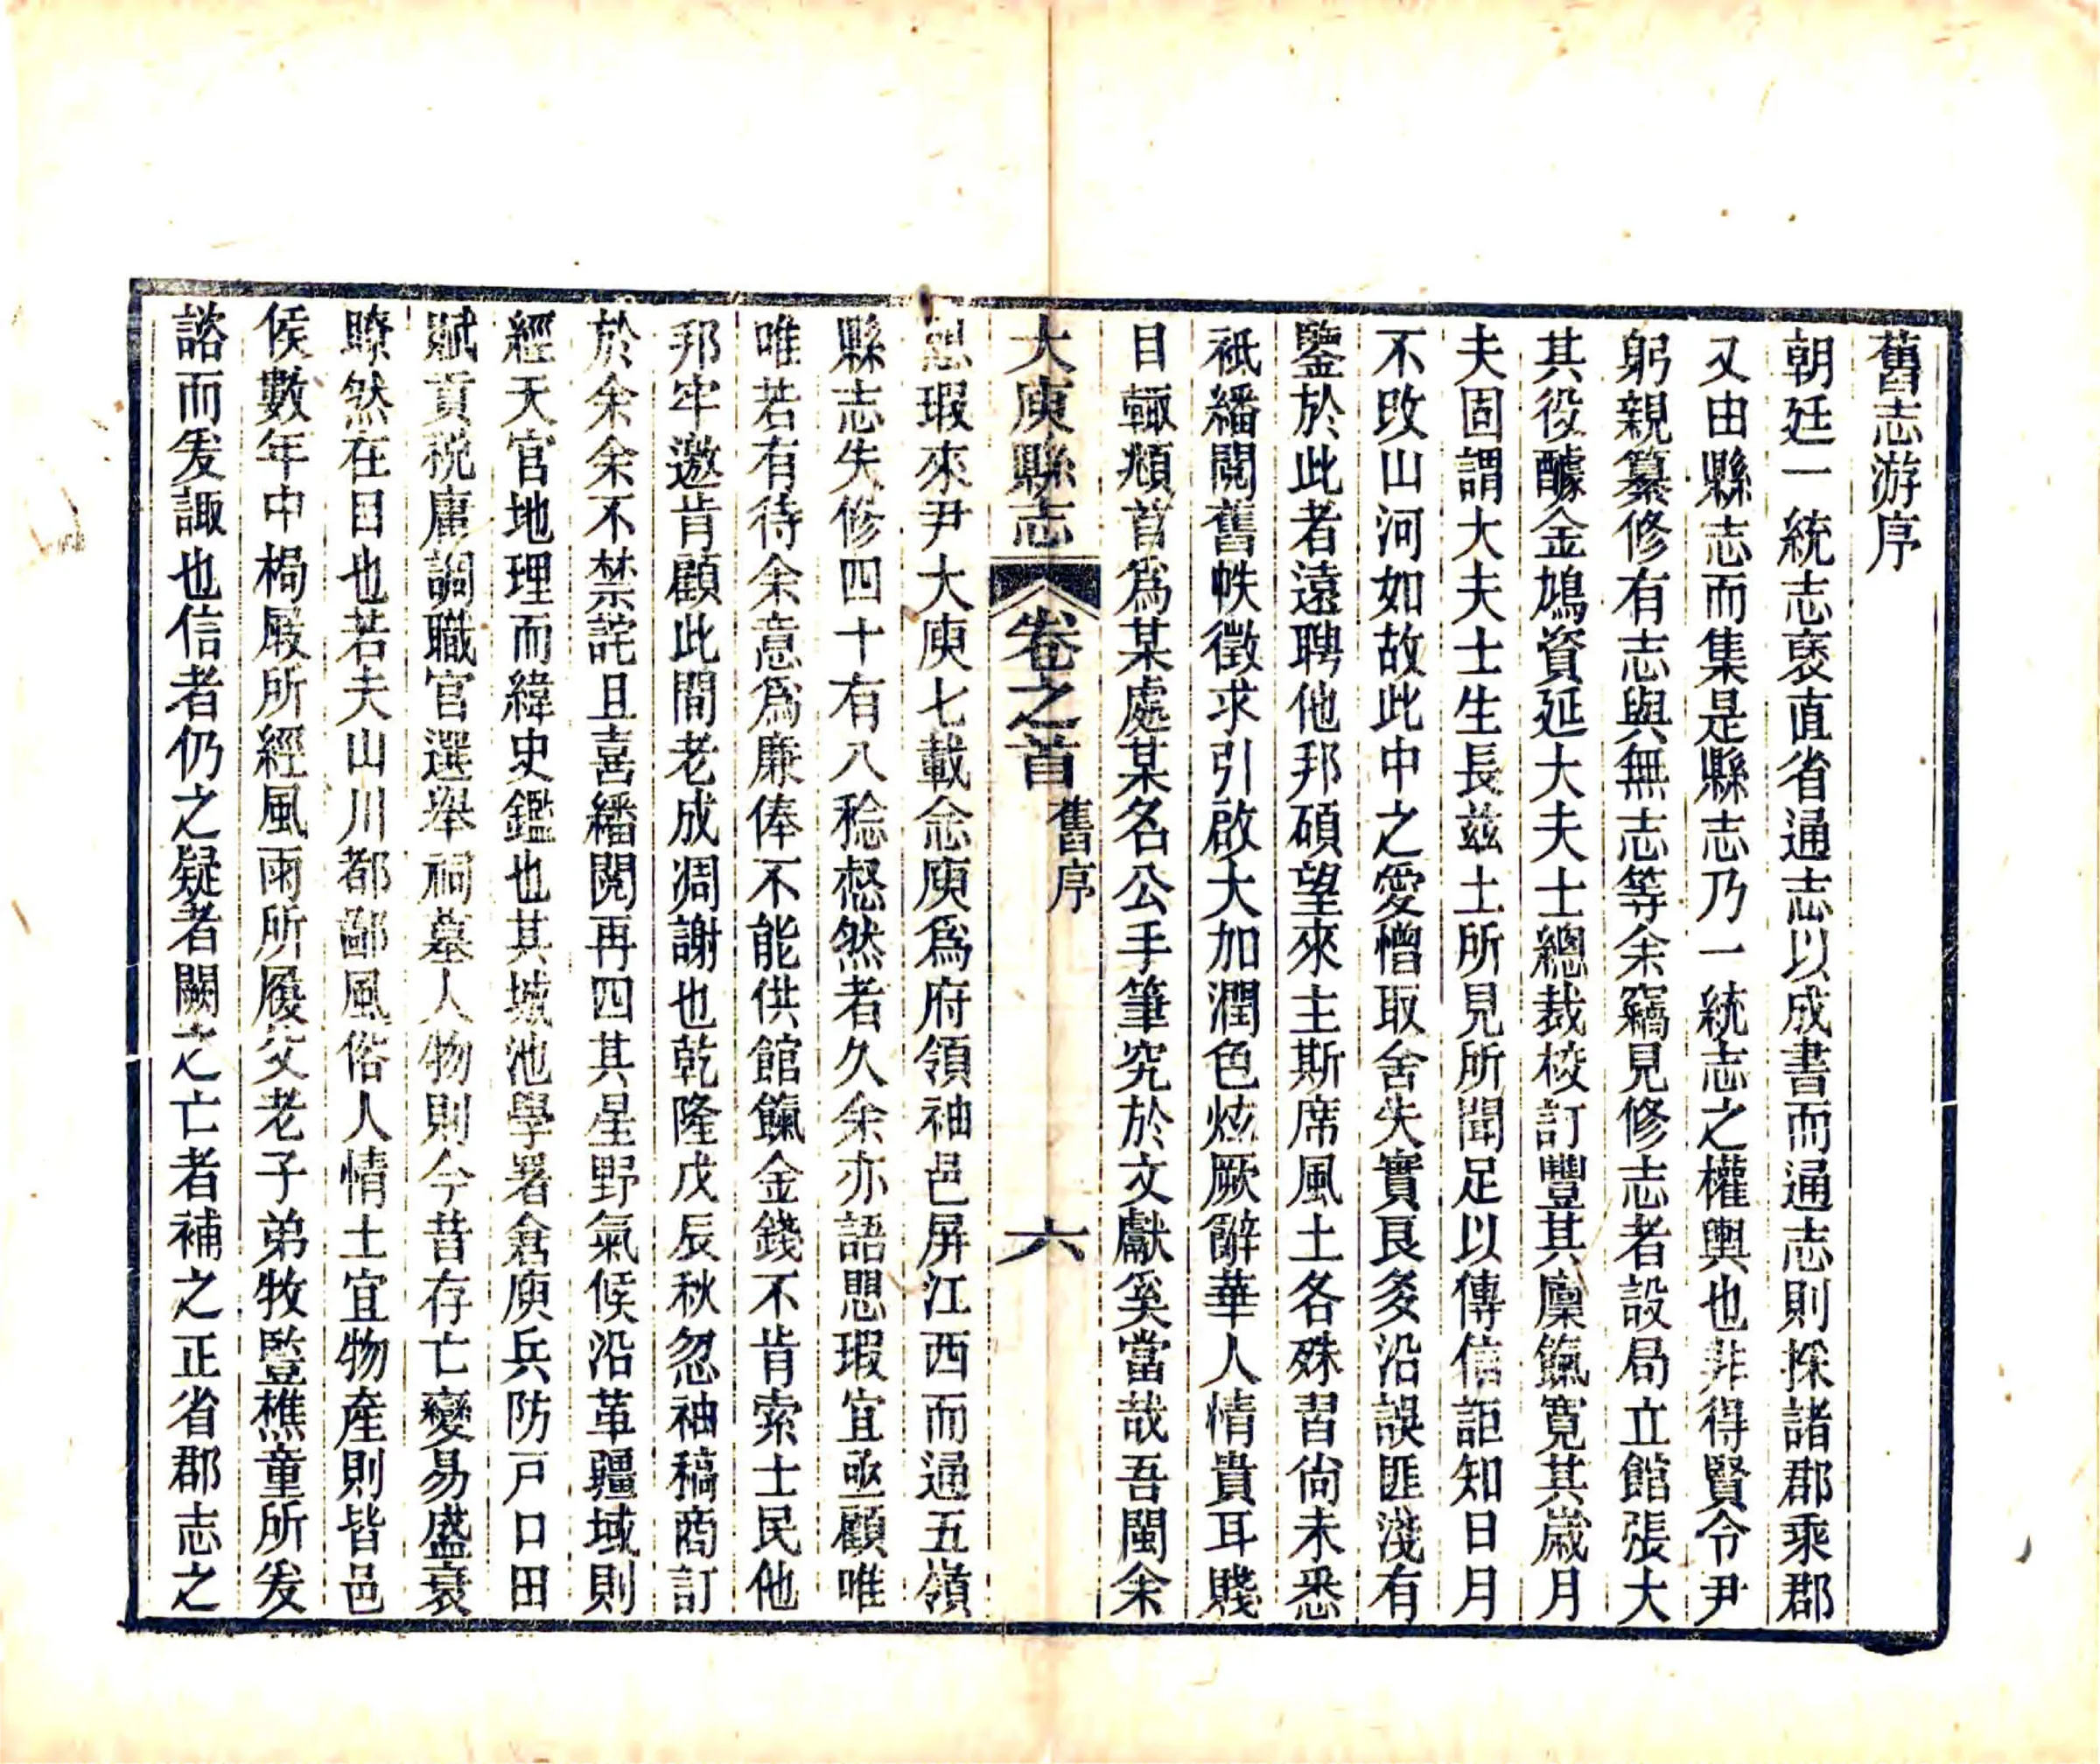 舊志游序
朝廷一統志裒直省通志以成書而通志則採諸郡乘郡
又由縣志而集是縣志乃一統志之權輿也非得賢令尹
躬親纂修有志與無志等余竊見修志者設局立館張大
其役醵金鳩資延大夫士總裁校訂豐其廩餼寬其歲月
夫固謂大夫士生長兹土所見所聞足以傳信詎知日月
不改山河如故此中之愛憎取舍失實良多沿誤匪淺有
鑒於此者遠聘他邦碩望來主斯席風土各殊習尚未悉
祇繙閱舊帙徵求引啟大加潤色炫厥辭華人情貴耳賤
目輒頫首爲某處某名公手筆究於文獻奚當哉吾閩余
大庾縣志 卷之首 舊序 六
瑕來尹大庾七載念庾爲府領袖邑屏江西而通五嶺
縣志失修四十有八稔惄然者久余亦語思瑕宜亟顧唯
唯若有待余意爲廉俸不能供館餼金錢不肯索士民他
邦牢邀肯顧此間老成凋謝也乾隆戊辰秋忽袖稿商訂
於余余不禁詫且喜繙閱再四其星野氣候沿革疆域則
經天官地理而緯史鑑也其城池學署倉庾兵防戸口田
賦貢税廟祠職官選舉祠墓人物則今昔存亡變易盛衰
瞭然在目也若夫山川都鄙風俗人情土宜物產則皆邑
侯數年中梮屐所經風雨所履父老子弟牧豎樵童所爰
諮而爰諏也信者仍之疑者闕之亡者補之正省郡志之